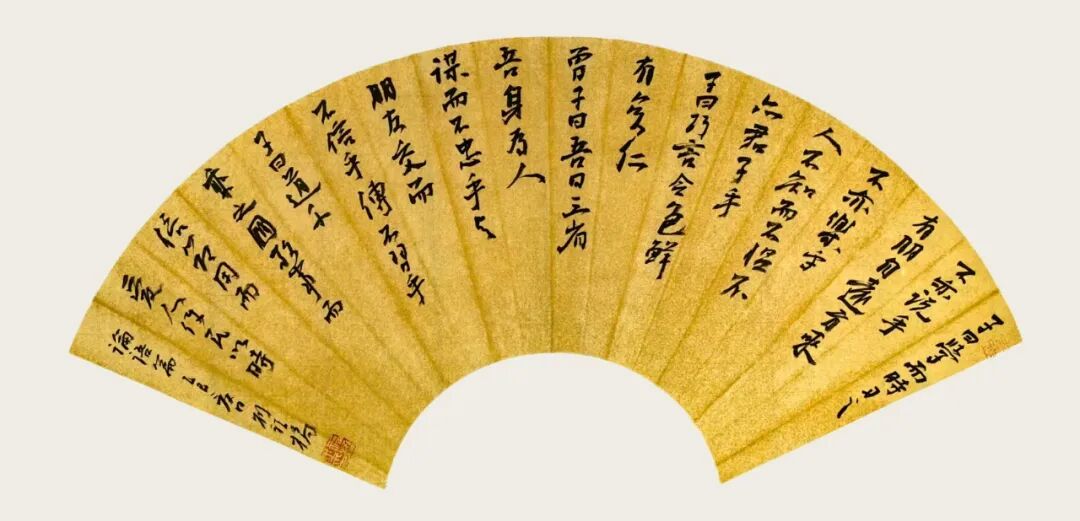 子曰學而時習之
不亦说乎
有朋自遠方來
不亦樂乎
人不知而不愠不
亦君子乎
子曰巧言令色鲜
有矣仁
曾子曰吾日三省
吾身为人
谋而不忠乎与
朋友交而
不信乎傳不習乎
子曰道千
乘之國敬事而
信節用而
愛人使民以時
論語篇